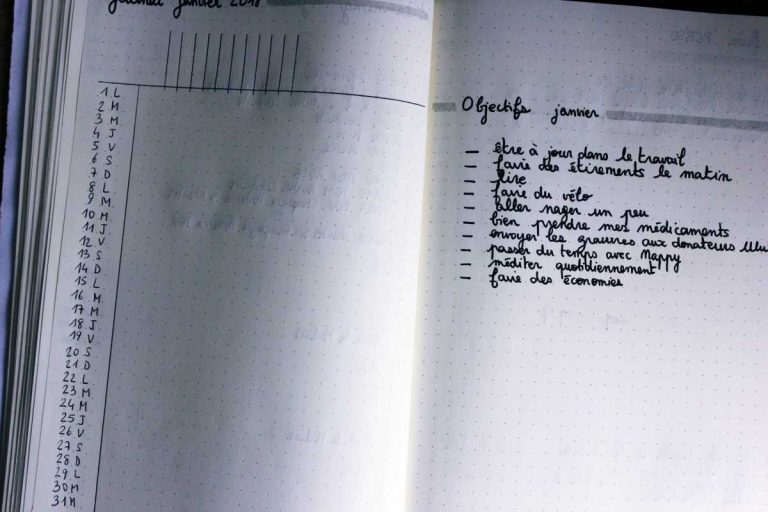 journal janvier 2018
1 L
2 M
3 M
4 J
5 V
6 S
7 D
8 L
9 M
10 M
11 J
12 V
13 S
14 D
15 L
16 M
17 M
18 J
19 V
20 S
21 D
22 L
23 M
24 M
25 J
26 V
27 S
28 D
29 L
30 M
31 M
Objectifs janvier
– être à jour dans le travail
– faire des étirements le matin
– lire
– faire du vélo
– aller nager un peu
– bien prendre mes médicaments
– envoyer les gravures aux donateurs
– passer du temps avec Nappy
– méditer quotidiennement
– faire des économies